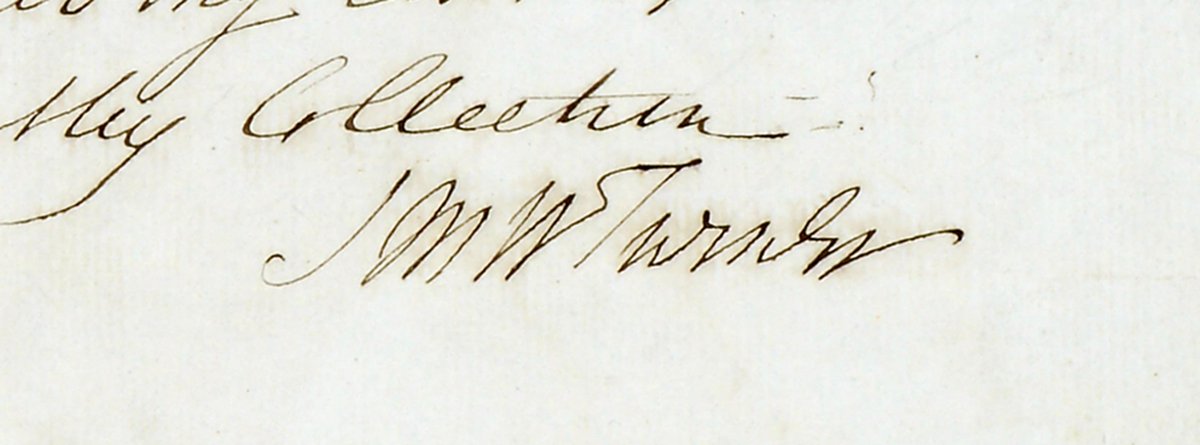 my
My Collection –
J M W Turner